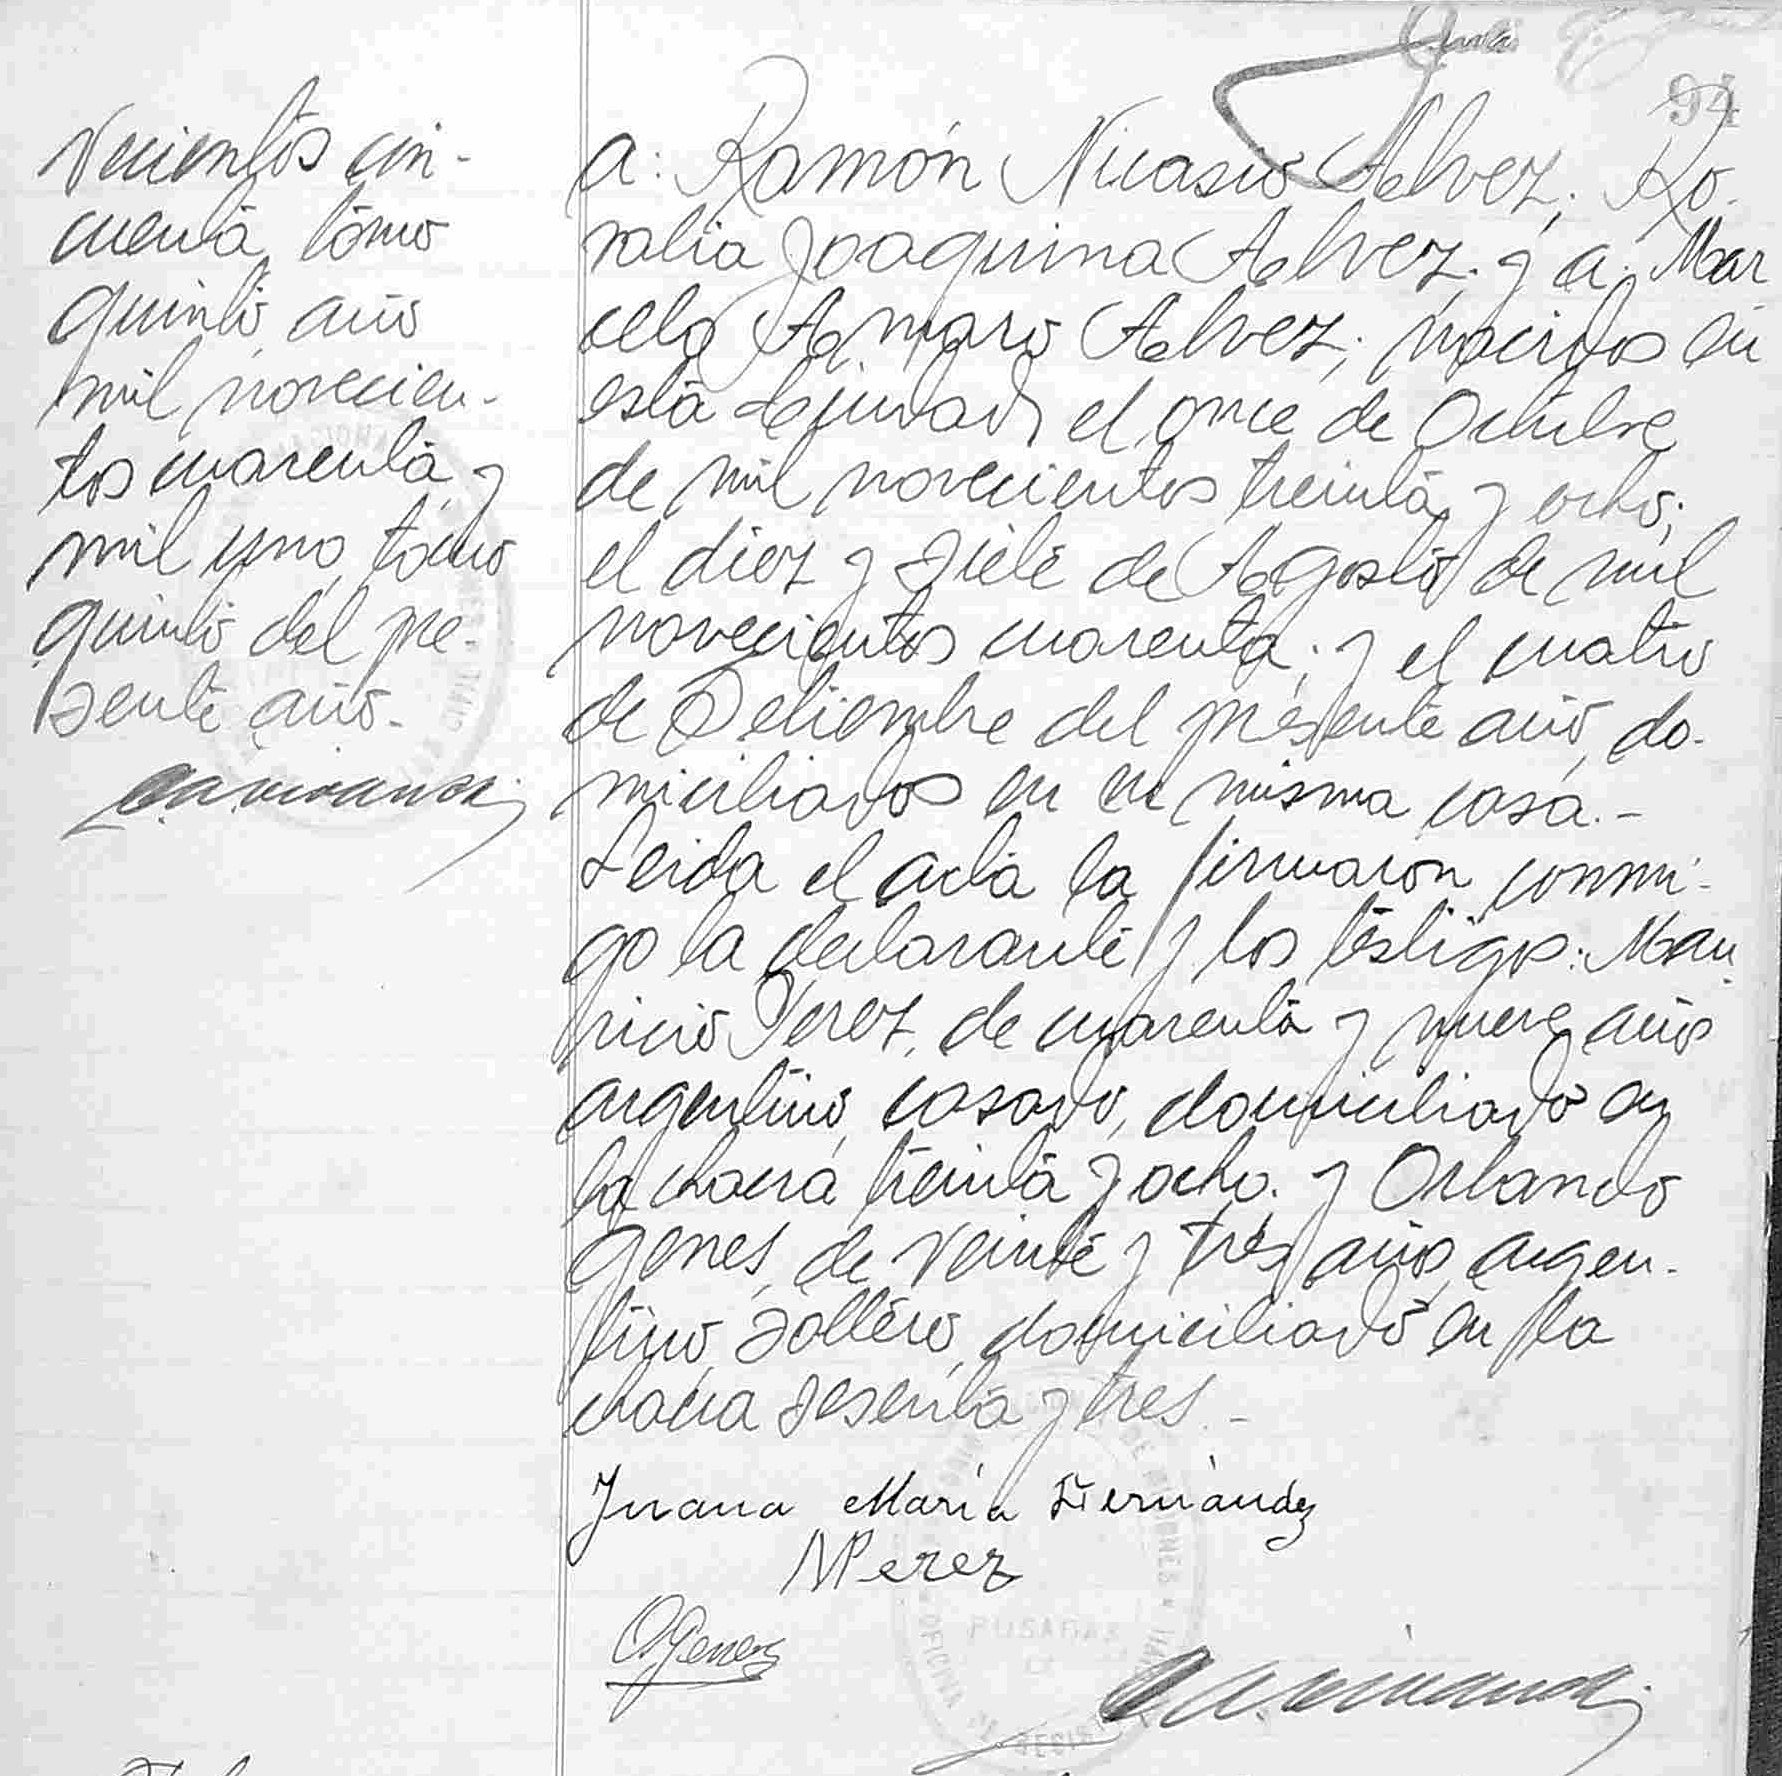 94
vecientos cin-
cuenta, tomo
quinto, año
mil novecien-
tos cuarenta y
mil uno, tomo
quinto del pre-
sente año.-
a: Ramón Nicasio Alvez; Ro-
salia Joaquina Alvez; y a: Mar
celo Amaro Alvez; nacidos en
esta de el once de Octubre
de mil novecientos treinta y ocho;
el diez y siete de Agosto de mil
novecientos cuarenta; y el cuatro
de Setiembre del presente año, do-
miciliados en su misma casa.-
Leida el acta la firmaron conmi-
go la declarante y los testigos: Mau
ricio Perez, de cuarenta y nueve años
argentino, casado, domiciliado en
la chacra treinta y ocho; y Orlando
Genes, de veinte y tres años, argen-
tino, soltero, domiciliado en la
chacra sesenta y tres.-
Juana María Fernández
MPerez
OGenes
POSADAS